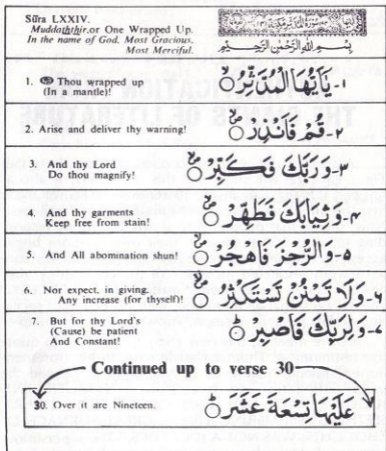 Sūra LXXIV.
Muddaththir, or One Wrapped Up.
In the name of God, Most Gracious,
Most Merciful.
بِسْمِ اللهِ الرَّحْمٰنِ الرَّحِيْمِ
1. Thou wrapped up
(In a mantle)!
١- يٰٓاَيُّهَا الْمُدَّثِّرُ
2. Arise and deliver thy warning!
٢- قُمْ فَاَنْذِرْ
3. And thy Lord
Do thou magnify!
٣- وَرَبَّكَ فَكَبِّرْ
4. And thy garments
Keep free from stain!
٤- وَثِيَابَكَ فَطَهِّرْ
5. And All abomination shun!
٥- وَالرُّجْزَ فَاهْجُرْ
6. Nor expect, in giving,
Any increase (for thyself)!
٦- وَلَا تَمْنُنْ تَسْتَكْثِرُ
7. But for thy Lord's
(Cause) be patient
And Constant!
٧- وَلِرَبِّكَ فَاصْبِرْ
Continued up to verse 30
30. Over it are Nineteen.
عَلَيْهَا تِسْعَةَ عَشَرَ